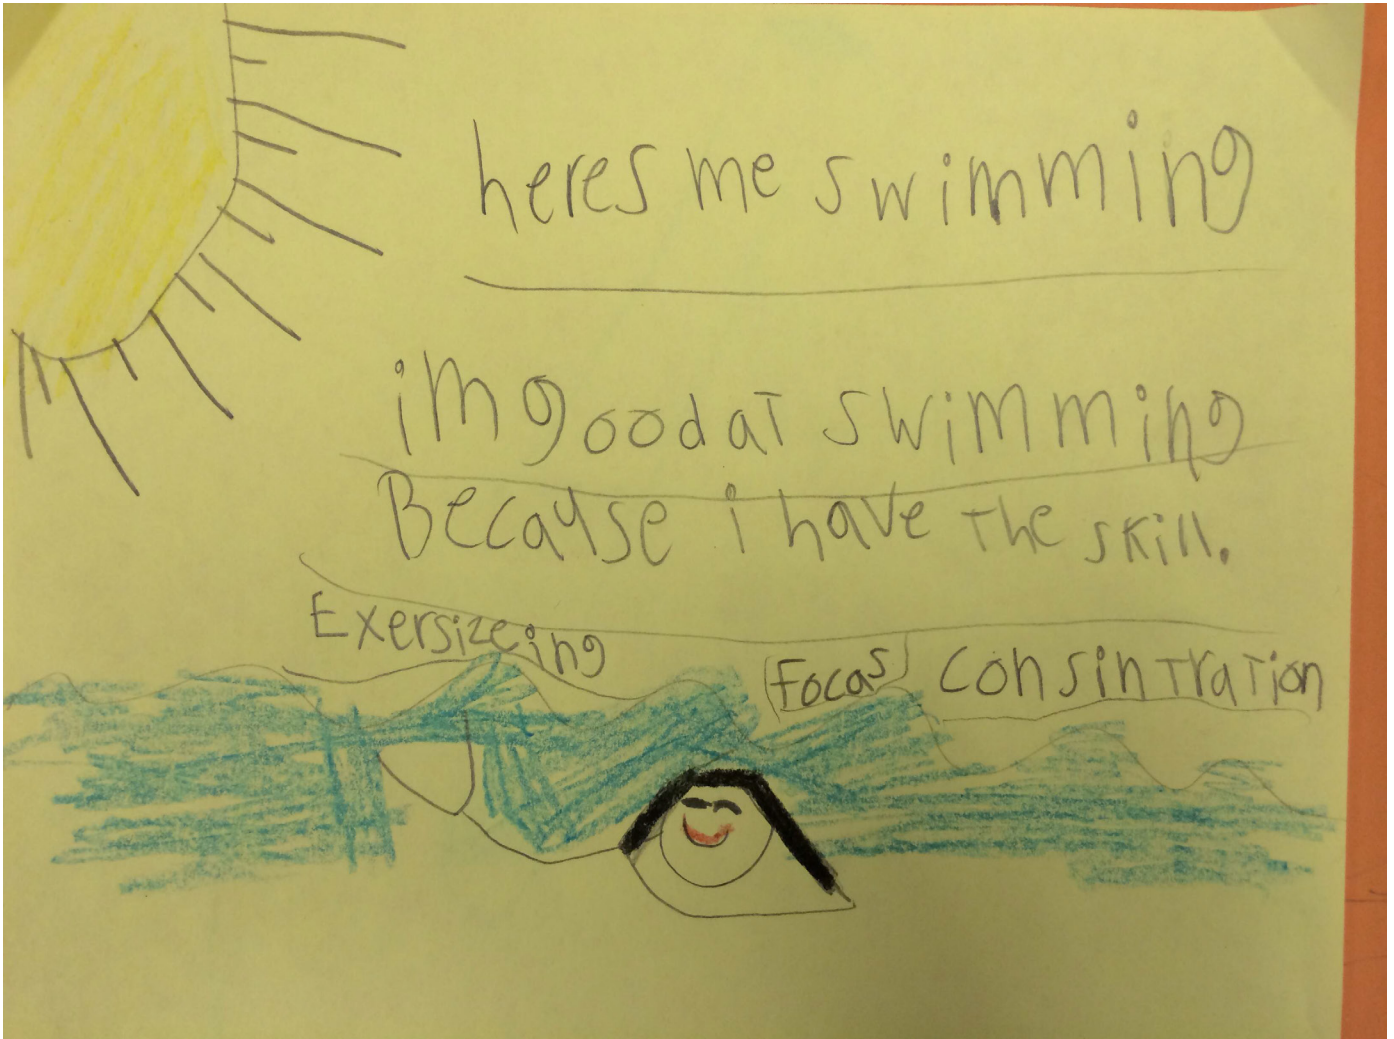 heres me swimming
im good at swimming
Because i have the skill.
Exersizeing
Focas consintration